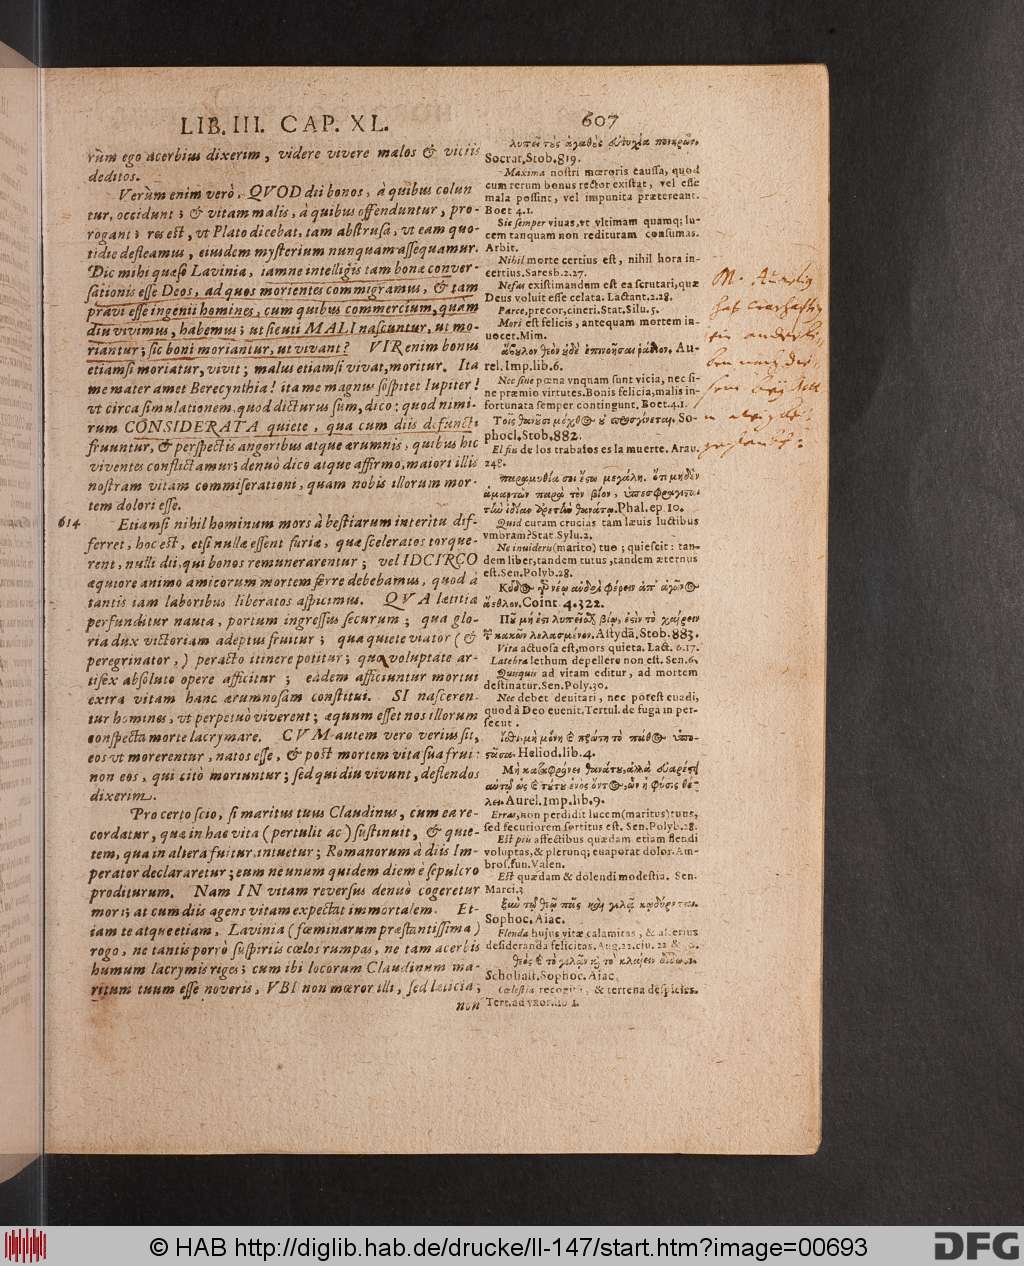 LIB. III. CAP. XL.
607
rùm ego acerbius dixerim, videre vivere malos & viciis
deditos.
Verùm enim verò, QVOD dii bonos, à quibus colun
tur, occidunt; & vitam malis, à quibus offenduntur, pro-
rogant; res est, vt Plato dicebat, tam abstrusa, vt eam quo-
tidie defleamus, eiusdem mysterium nunquam assequamur.
Dic mihi quæso Lavinia, iamne intelligis tam bonæ conver-
sationis esse Deos, ad quos morientes commigramus, & tam
pravi esse ingenii homines, cum quibus commercium, quam
diu vivimus, habemus; ut sicuti MALI nascuntur, ut mo-
riantur; sic boni moriantur, ut vivant? VIR enim bonus
etiamsi moriatur, vivit; malus etiamsi vivat, moritur. Ita
me mater amet Berecynthia! ita me magnus sospitet Iupiter!
vt circa simulationem, quod dicturus sum, dico: quod nimi-
rum CONSIDERATA quiete, qua cum diis defuncti
fruuntur, & perspectis angoribus atque ærumnis, quibus hic
viventes conflictamur; denuò dico atque affirmo, maiori illis
nostram vitam commiserationi, quam nobis illorum mor-
tem dolori esse.
614
Etiamsi nihil hominum mors à bestiarum interitu dif-
ferret, hoc est, etsi nullæ essent furiæ, quæ sceleratos torque-
rent, nulli dii, qui bonos remunerarentur; vel IDCIRCO
æquiore animo amicorum mortem ferre debebamus, quod à
tantis iam laboribus liberatos aspicimus. QVA lætitia
perfunditur nauta, portum ingressus securum; qua glo-
ria dux victoriam adeptus fruitur; qua quiete viator (&
peregrinator,) peracto itinere potitur; qua voluptate ar-
tifex absoluto opere afficitur; eâdem afficiuntur mortui
extra vitam hanc ærumnosam constituti. SI nasceren-
tur homines, vt perpetuò viverent; æquum esset nos illorum
conspecta morte lacrymare. CVM autem vero verius sit,
eos vt morerentur, natos esse, & post mortem vita sua frui:
non eos, qui citò moriuntur; sed qui diu vivunt, deflendos
dixerim.
Pro certo scio, si maritus tuus Claudinus, cum ea re-
cordatur, quæ in hac vita (pertulit ac) sustinuit, & quie-
tem, qua in altera fuitur, intuetur; Romanorum à diis Im-
perator declararetur; eum ne unum quidem diem è sepulcro
proditurum. Nam IN vitam reversus denuò cogeretur
mori; at cum diis agens vitam expectat immortalem. Et-
iam te atque etiam, Lavinia (fœminarum præstantissima)
rogo, ne tantis porrò suspiriis cœlos rumpas, ne tam acerbis
humum lacrymis riges; cum ibi locorum Claudinum ma-
ritum tuum esse noveris, VBI non mœror illi, sed læticia;
non
Socrat. Stob. 819.
Maxima nostri mœroris caussa, quod
cum rerum bonus rector existat, vel esse
mala possint, vel impunita prætereant.
Boet 4.1.
Sic semper viuas, vt vltimam quamq; lu-
cem tanquam non redituram consumas.
Arbit.
Nihil morte certius est, nihil hora in-
certius. Saresb. 2.27.
Nefas existimandum est ea scrutari, quæ
Deus voluit esse celata. Lactant. 2.28.
Parce, precor, cineri. Stat. Silu. 5.
Mori est felicis, antequam mortem in-
uocet. Mim.
Au-
rel. Imp. lib. 6.
Nec sine pœna vnquam sunt vicia, nec si-
ne præmio virtutes. Bonis felicia, malis in-
fortunata semper contingunt. Boet. 4.1.
So-
phocl. Stob. 882.
El fin de los trabaios es la muerte. Arau.
248.
παραμυθία σοι ἔστω μεγάλη. ὅτι μηδὲν
ἁμαρτὼν παρὰ τὸν βίον,
Phal. ep 10.
Quid curam crucias tam læuis luctibus
vmbram? Stat Sylu. 2.
Ne inuideris (marito) tuo; quiescit: tan-
dem liber, tandem tutus, tandem æternus
est. Sen. Polyb. 28.
ἄεθλον. Coint. 4.322.
Astydā, Stob. 883.
Vita actuosa est, mors quieta. Lact. 6.17.
Latebra lethum depellere non est. Sen. 6.
Quisquis ad vitam editur, ad mortem
destinatur. Sen. Poly. 30.
Nec debet deuitari, nec potest euadi,
quod à Deo euenit. Tertul. de fuga in per-
secut.
Heliod. lib. 4.
Μὴ καταφρόνει θανάτου, ἀλλὰ
Aurel. Imp. lib. 9.
Erras, non perdidit lucem (maritus) tuus,
sed securiorem sortitus est. Sen. Polyb. 28.
Est piis affectibus quædam etiam flendi
voluptas, & plerunq; euaporat dolor. Am-
bros. fun. Valen.
Est quædam & dolendi modestia. Sen.
Marci. 3
Sophoc. Aiac.
Flenda hujus vitæ calamitas, & alterius
desideranda felicitas. Aug. 22. ciu. 22
Scholiast. Sophoc. Aiac.
Cœlestia recogita, & terrena despicies.
Tert. ad vxor. lib 1.
© HAB http://diglib.hab.de/drucke/ll-147/start.htm?image=00693
DFG